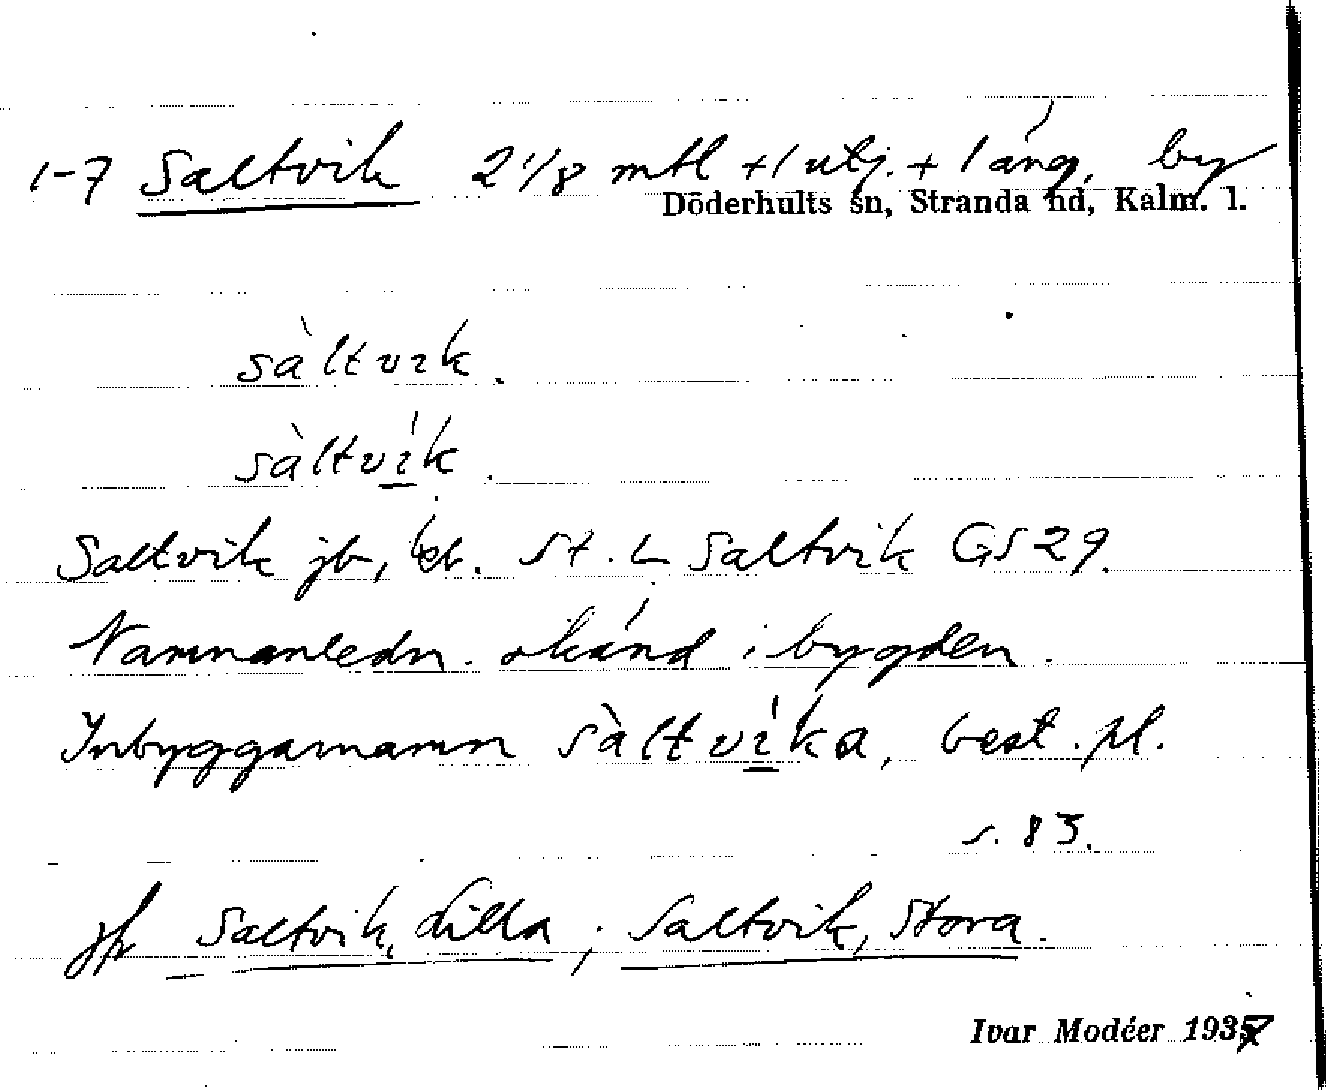 1-7 Saltvik 2 1/8 mtl + 1 utj. + 1 äng, by
Döderhults sn, Stranda hd, Kalm. l.
sàltvɪk.
sàltvɪ́k.
Saltvik jb, kb. St. L Saltvik GS 29.
Namnanledn. okänd i bygden.
Inbyggarnamn sàltvɪ́ka, best. pl.
s. 83.
jfr Saltvik, Lilla; Saltvik, Stora.
Ivar Modéer 1937